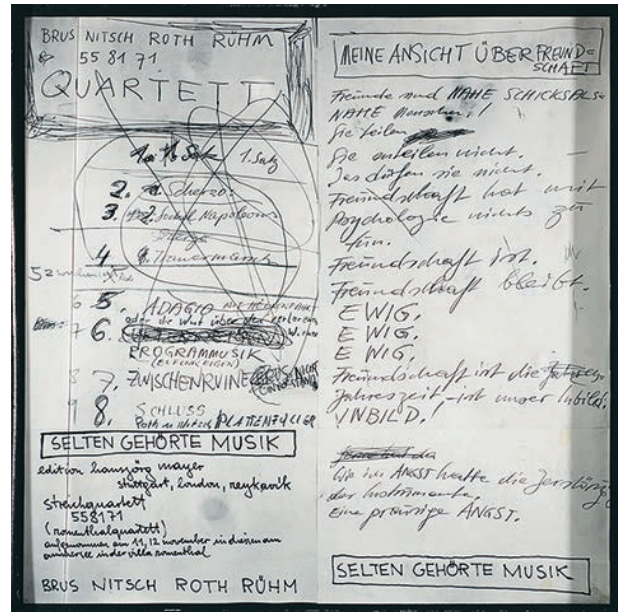 BRUS NITSCH ROTH RÜHM
558171
QUARTETT
1. Satz
2. Scherzo
3. Napoleons
4. Trauermarsch
5. ADAGIO
6. oder die Wut über den verlorenen
PROGRAMMUSIK
7. ZWISCHENRUINE
8. SCHLUSS
PLATTENFÜLLER
SELTEN GEHÖRTE MUSIK
edition hansjörg mayer
stuttgart, london, reykjavik
streichquartett
558171
(romenthalquartett)
aufgenommen am 11, 12 november in diessen am
ammersee in der villa romenthal
BRUS NITSCH ROTH RÜHM
MEINE ANSICHT ÜBER FREUND=
SCHAFT
Freunde sind NAHE SCHICKSALS=
NAHE Menschen!
Sie teilen
Sie urteilen nicht.
Das dürfen sie nicht.
Freundschaft hat mit
Psychologie nichts zu
tun.
Freundschaft ist.
Freundschaft bleibt.
EWIG.
EWIG.
EWIG.
Freundschaft ist die
Jahreszeit - ist unser Inbild.
INBILD!
ANGST hatte die
der Instrumente.
Eine ANGST.
SELTEN GEHÖRTE MUSIK